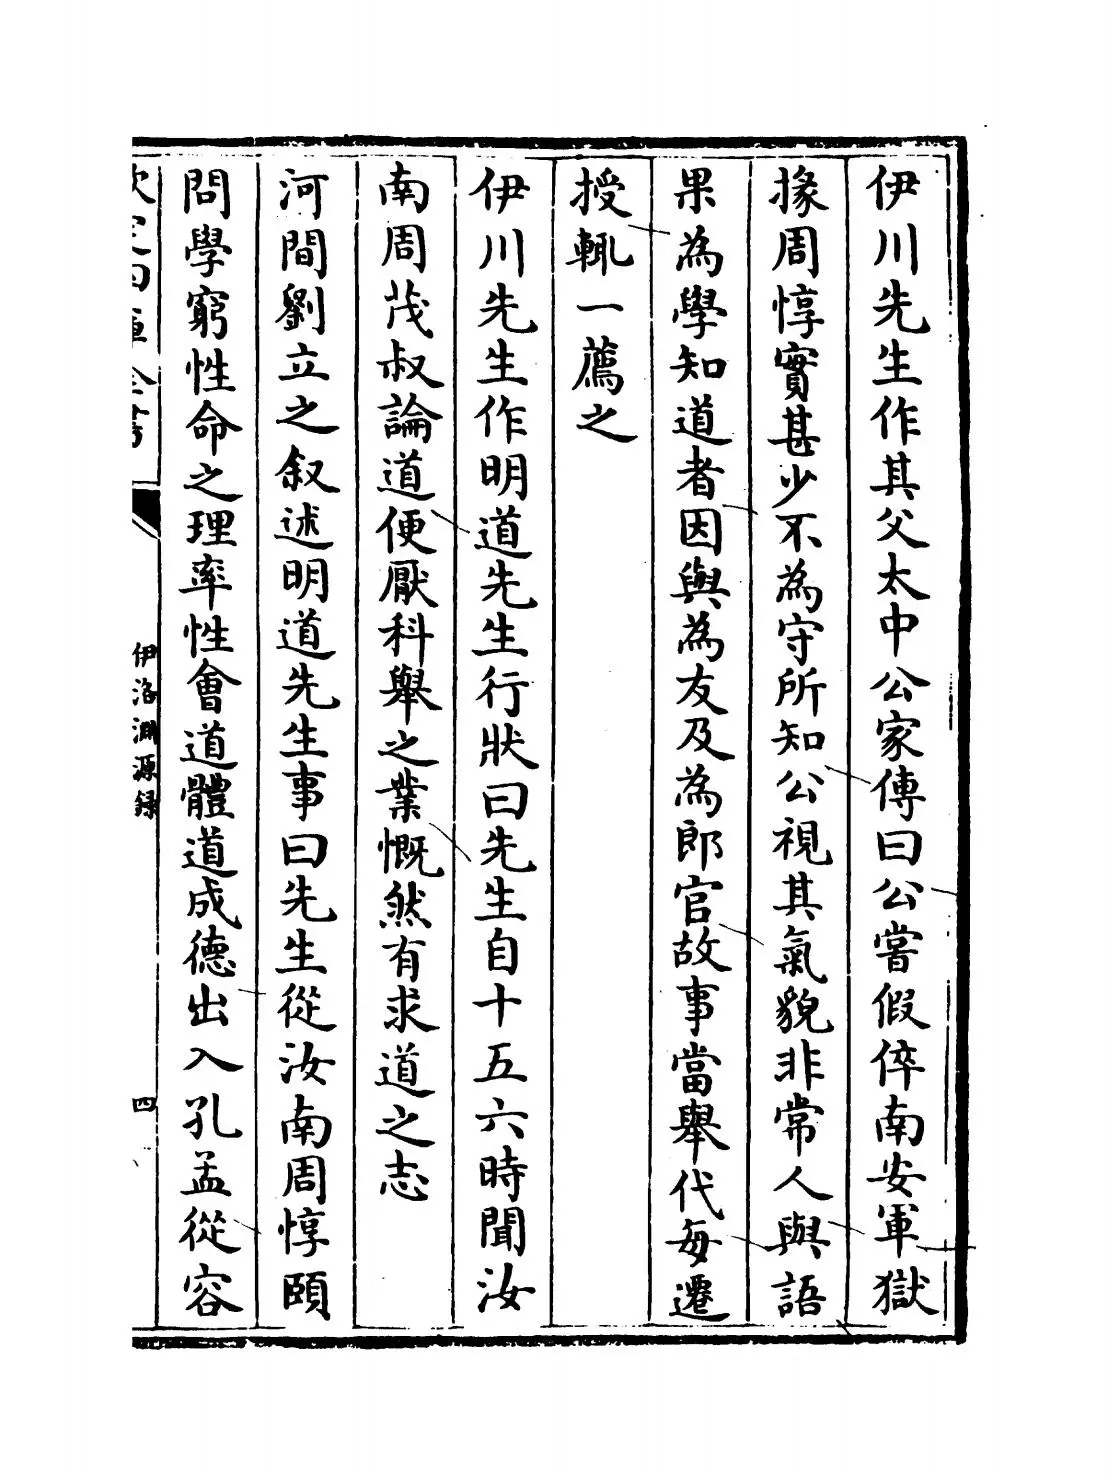 伊川先生作其父太中公家傳曰公嘗假倅南安軍獄
掾周惇實甚少不為守所知公視其氣貌非常人與語
果為學知道者因與為友及為郎官故事當舉代每遷
授輒一薦之
伊川先生作明道先生行狀曰先生自十五六時聞汝
南周茂叔論道便厭科舉之業慨然有求道之志
河間劉立之叙述明道先生事曰先生從汝南周惇頤
問學窮性命之理率性會道體道成德出入孔孟從容
欽定四庫全書
伊洛淵源録
四